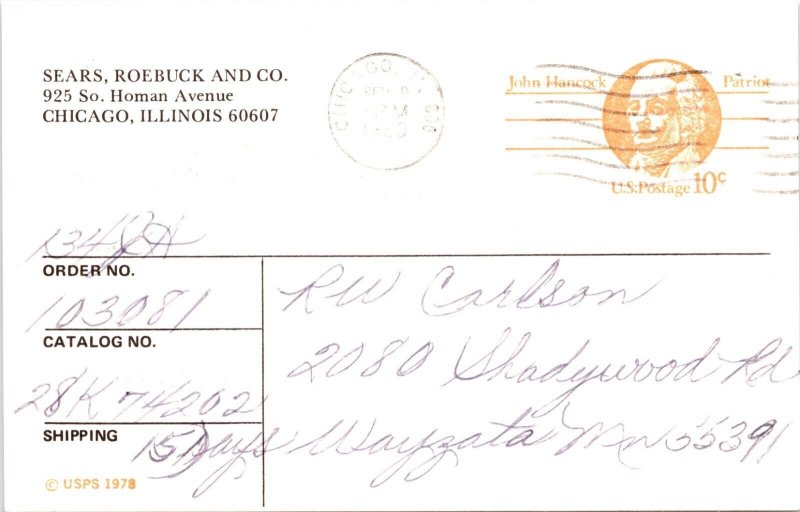 SEARS, ROEBUCK AND CO.
925 So. Homan Avenue
CHICAGO, ILLINOIS 60607
CHICAGO, IL
PM
John Hancock Patriot
U.S. Postage 10¢
ORDER NO.
103081
CATALOG NO.
28K 74202
SHIPPING
15 Days
© USPS 1978
RW Carlson
2080 Shadywood Rd
Wayzata Mn 55391